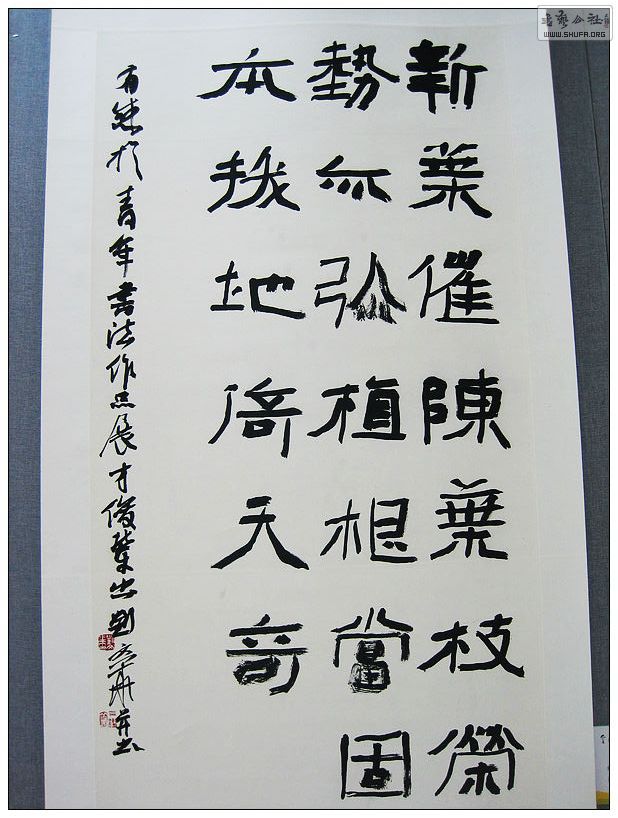 新葉催陳葉枝榮
勢亦植根當固
本拔地倚天奇
有感於青年書法作品展才俊輩出劉文華并書
書藝公社
WWW.SHUFA.ORG